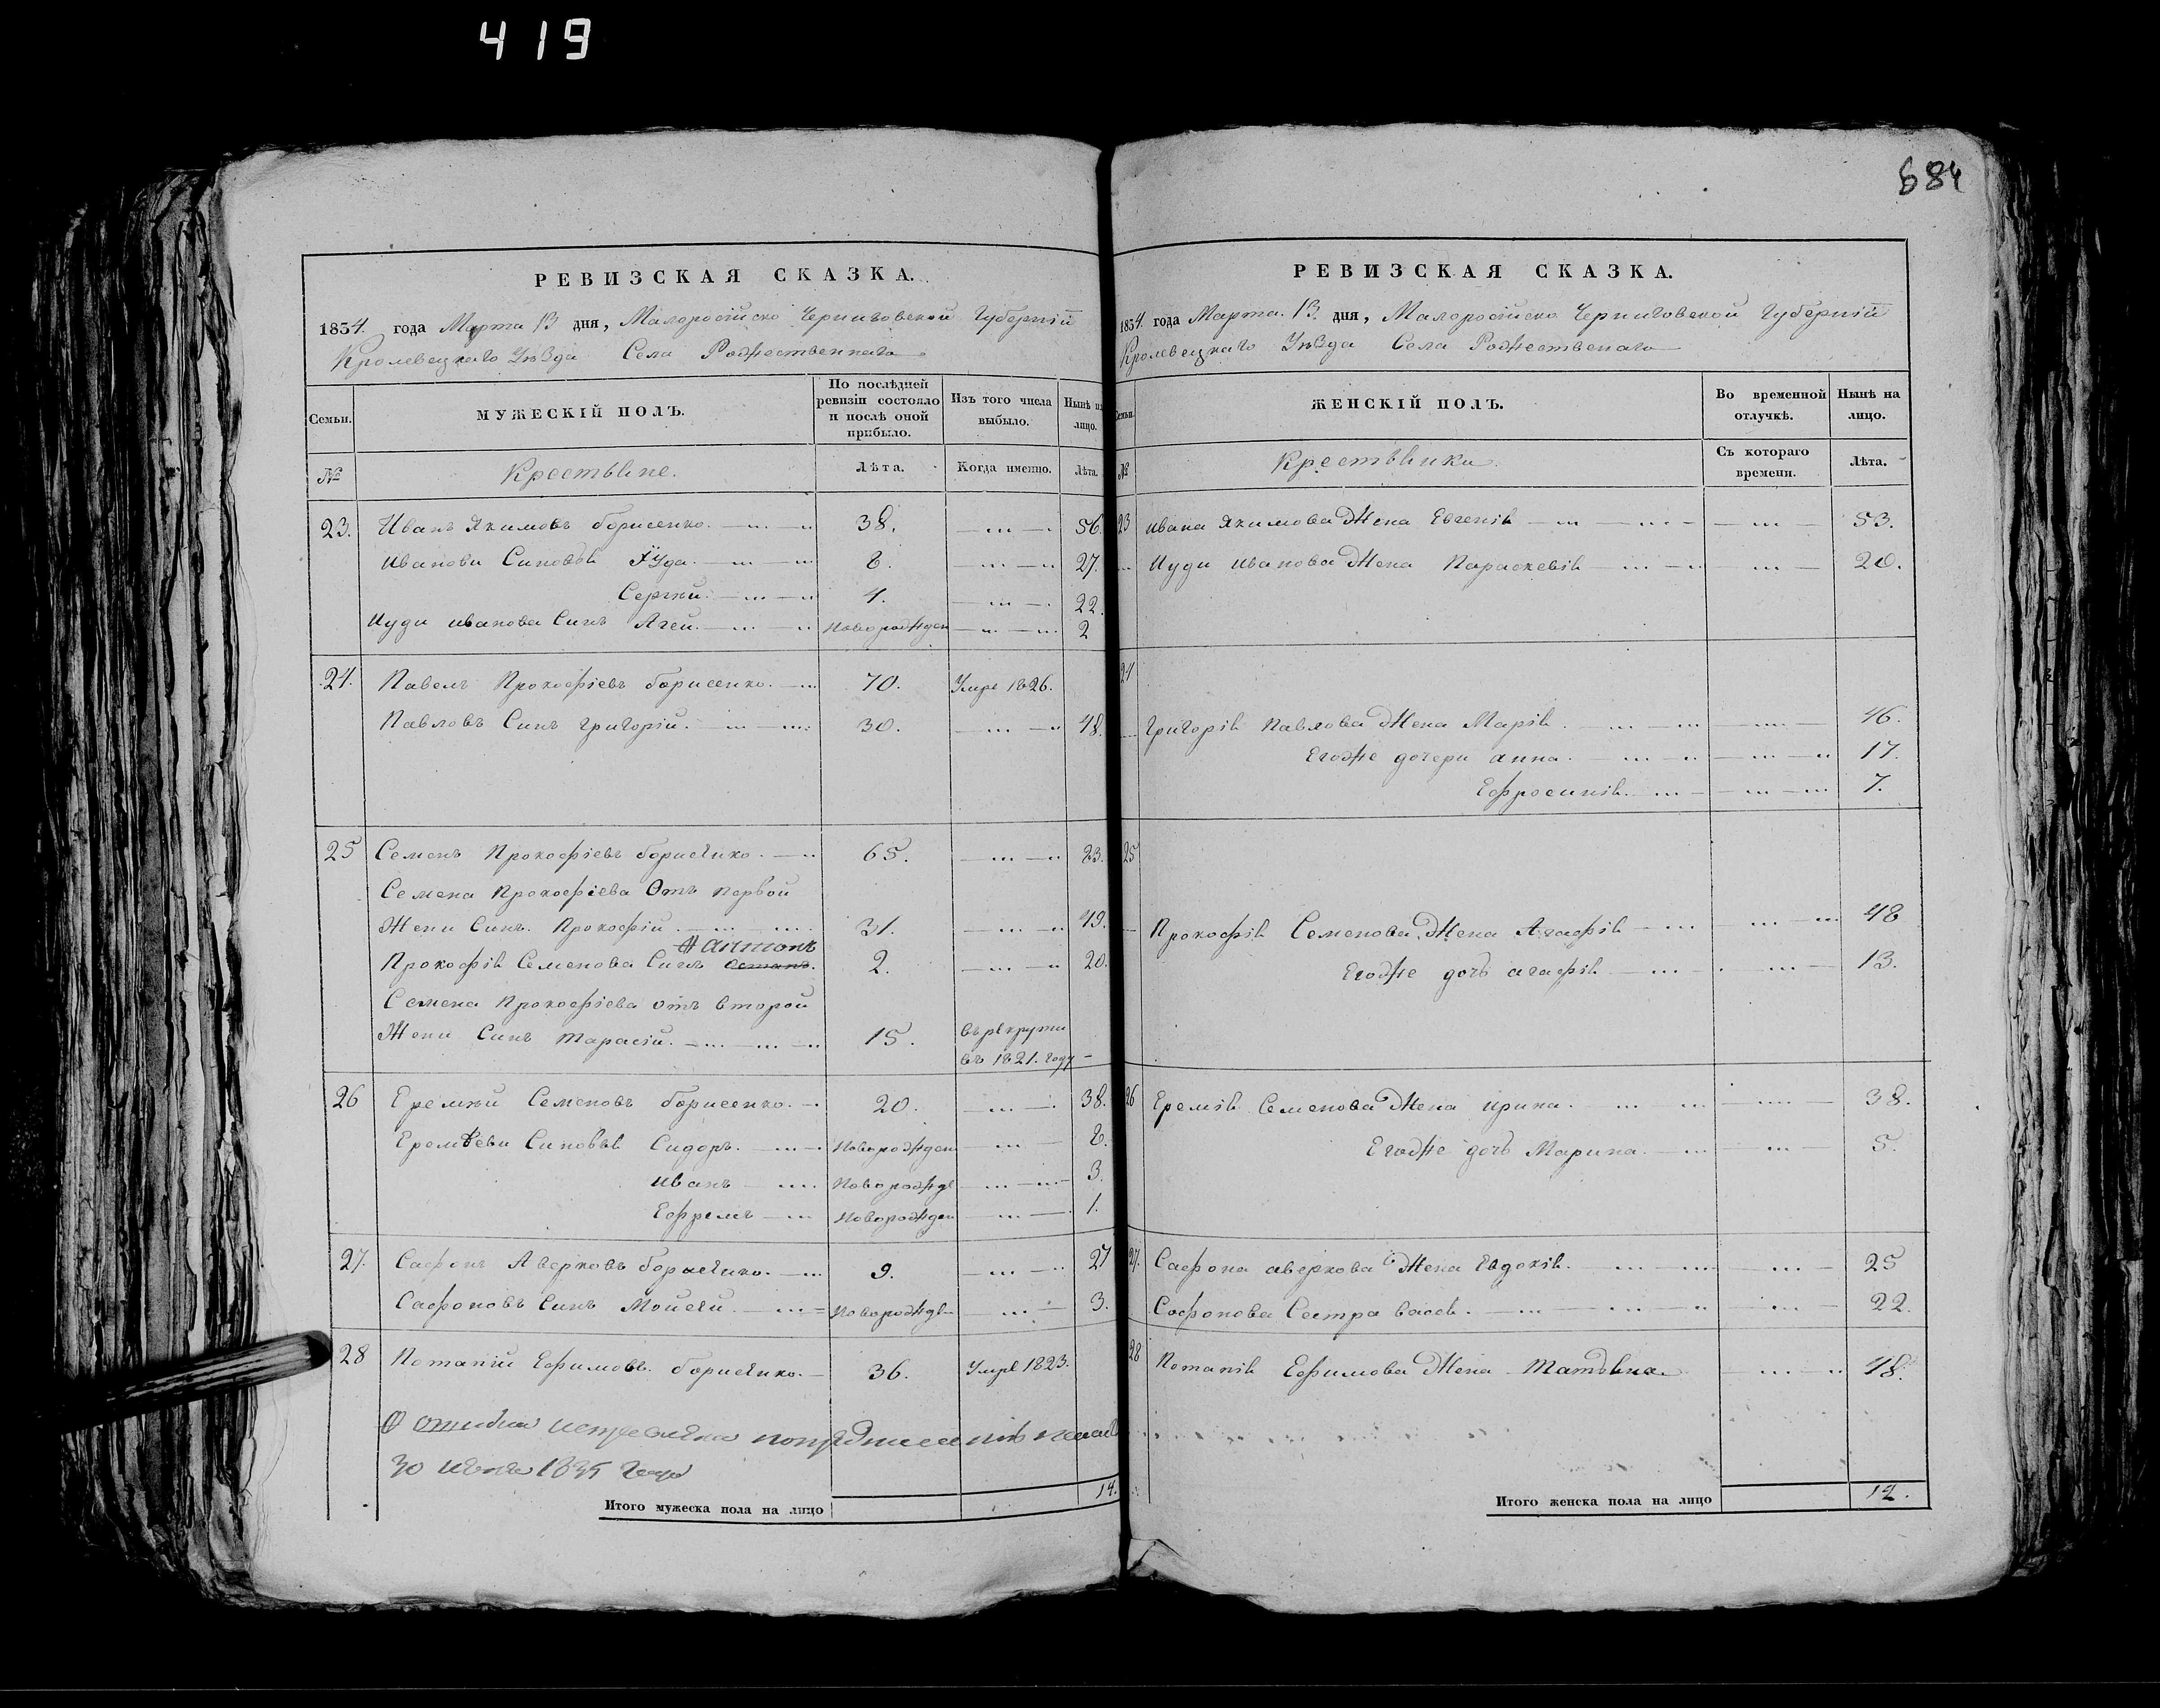 419
684
РЕВИЗСКАЯ СКАЗКА.
1834. года Марта 13 дня, Малоросійско Черниговской Губерніи
Кролевецкаго Уѣзда Села Рождественнаго
Семьи. МУЖЕСКІЙ ПОЛЪ. По послѣдней ревизіи состояло и послѣ оной прибыло. Изъ того числа выбыло. Нынѣ на лицо.
№ Крестьяне. Лѣта. Когда именно. Лѣта.
23. Иванъ Якимовъ Борисенко. 38. 56.
Иванови Синовья Іуда. 8. 27.
Сергий. 4. 22.
Иуди Иванова Синъ Агей. Новорожден 2
24. Павелъ Прокофіевъ Борисенко. 70. Умре 1826.
Павловъ Синъ Григорій. 30. 48.
25 Семенъ Прокофіевъ Борисенко. 65. 83.
Семена Прокофіева Отъ первой
Жени Синъ. Прокофій 31. 49.
Антонъ
Прокофія Семенова Синъ 2. 20.
Семена Прокофіева отъ второй
Жени Синъ Тарасій. 15. въ рекрути
въ 1821. году
26 Еремѣй Семеновъ Борисенко. 20. 38.
Еремѣеви Синовья Сидоръ. Новорожден 8.
Иванъ Новорожде 3.
Ефремъ Новорожден 1.
27. Сафонъ Аверковъ Борисенко. 9. 27
Сафоновъ Синъ Мойсей. Новорожде 3.
28 Потапій Ефимовъ. Борисенко. 36. Умре 1823.
ошибка исправлена
30 1835 года
Итого мужеска пола на лицо 14.
РЕВИЗСКАЯ СКАЗКА.
1834. года Марта. 13. дня, Малоросійско Черниговской Губерніи
Кролевецкаго Уѣзда Села Рождественаго
Семьи. ЖЕНСКІЙ ПОЛЪ. Во временной отлучкѣ. Нынѣ на лицо.
№ Крестьянки. Съ котораго времени. Лѣта.
23 Ивана Якимова Жена Евгенія 53.
Иуди Иванова Жена Параскевія 20.
24
Григорія Павлова Жена Марія. 46.
Егожe дочери Анна. 17.
Ефросинія. 7.
25
Прокофія Семенова Жена Агафія 48
Егоже дочь Агафія 13.
26 Еремія Семенова Жена Ирина. 38.
Егоже дочь Марина. 5.
27. Сафона Аверкова Жена Евдокія. 25
Сафонова Сестра Васса. 22.
28 Потапія Ефимова Жена Татьяна. 48.
Итого женска пола на лицо 12.